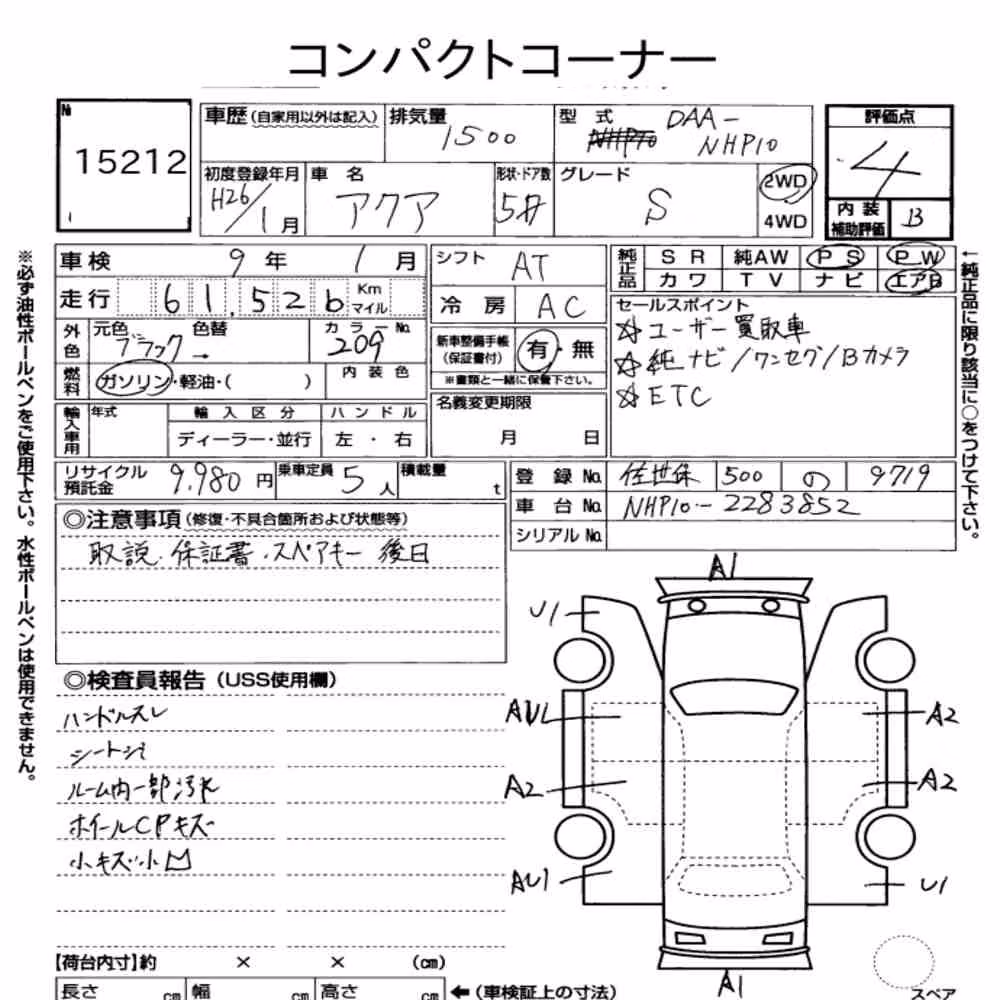 コンパクトコーナー
№ 15212
車歴 (自家用以外は記入) 排気量 1500 型式 DAA-NHP10
評価点 4
内装補助評価 B
初度登録年月 H26/1月 車名 アクア 形状・ドア数 5D グレード S 2WD 4WD
車検 9年 1月 シフト AT
純正品 SR 純AW PS PW
カワ TV ナビ エアB
走行 61,526 Km マイル 冷房 AC
セールスポイント
☆ユーザー買取車
☆純ナビ/ワンセグ/Bカメラ
☆ETC
外色 元色 ブラック 色替 → カラーNo. 209
新車整備手帳(保証書付) 有・無
※書類と一緒に保管下さい。
燃料 ガソリン・軽油・( ) 内装色
名義変更期限 月 日
輸入車用 年式 輸入区分 ハンドル
ディーラー・並行 左・右
リサイクル預託金 9,980円 乗車定員 5人 積載量 t
登録No. 佐世保 500 の 9719
車台No. NHP10-2283852
シリアルNo.
◎注意事項(修復・不具合箇所および状態等)
取説・保証書・スペアキー 後日
◎検査員報告(USS使用欄)
ハンドルスレ
シートシミ
ルーム内一部汚れ
ホイールCPキズ
小キズ小凹
A1
U1
AU1 A2
A2 A2
AU1 U1
A1
【荷台内寸】約 × × (cm)
長さ cm 幅 cm 高さ cm ←(車検証上の寸法)
スペア
※必ず油性ボールペンをご使用下さい。水性ボールペンは使用できません。
←純正品に限り該当に○をつけて下さい。